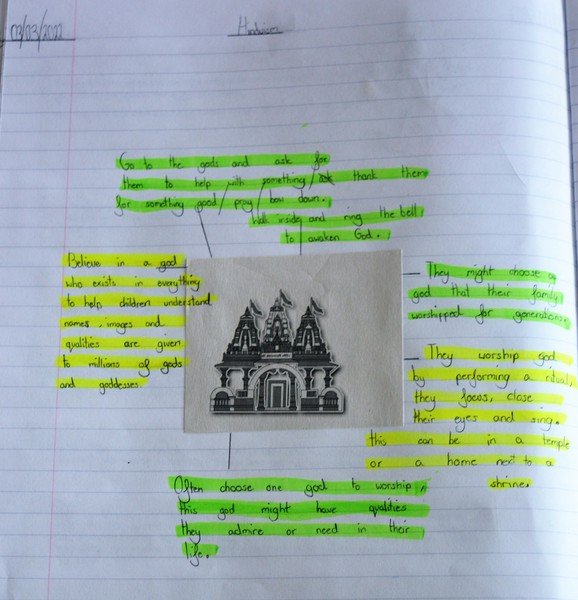 02/03/2022
Hinduism
Go to the gods and ask for
them to help with something / ask thank them
for something good / pray / bow down.
Walk inside and ring the bell
to awaken God.
Believe in a god
who exists in everything
to help children understand
names, images and
qualities are given
to millions of gods
and goddesses.
They might choose a
god that their family
worshipped for generations.
They worship god
by performing a ritual,
they focus, close
their eyes and sing.
this can be in a temple
or a home next to a
shrine.
Often choose one god to worship,
this god might have qualities
they admire or need in their
life.